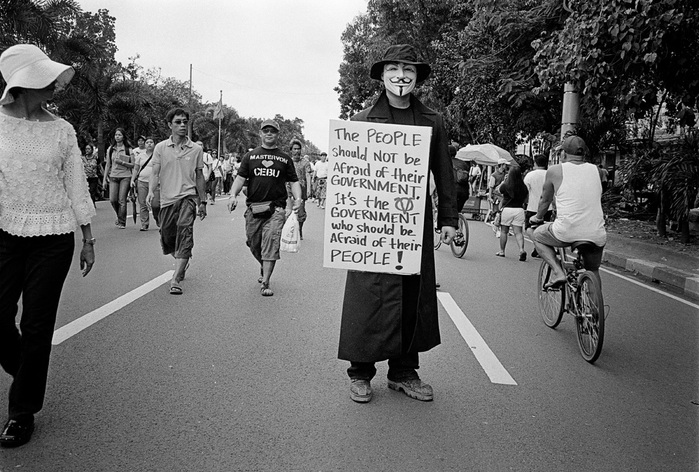 The PEOPLE
should NOT be
Afraid of their
GOVERNMENT.
It's the
GOVERNMENT
who should be
Afraid of their
PEOPLE!
CEBU